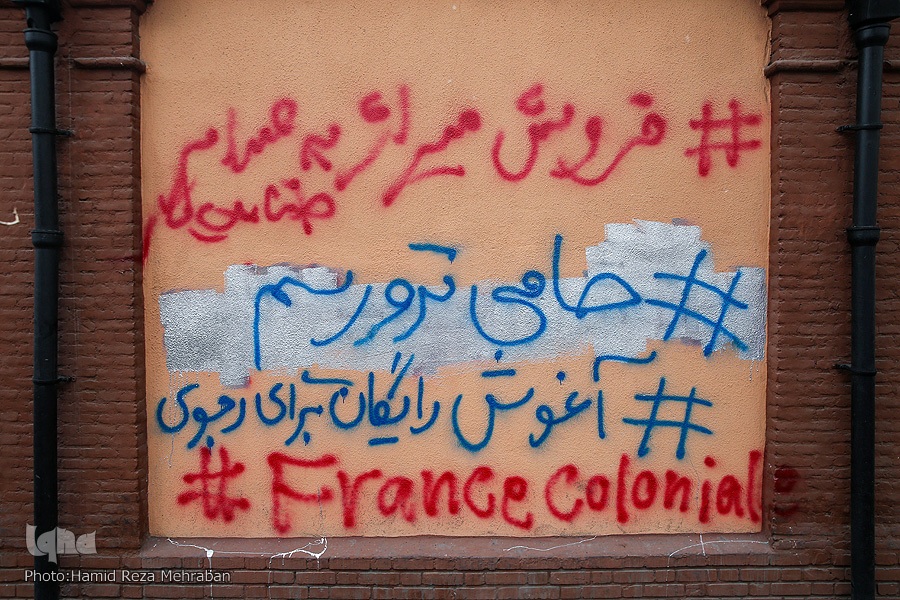 #فروش میراژ به صدام
#حامی تروریسم
#آغوش رایگان برای رجوی
#France coloniale
iqna
Photo:Hamid Reza Mehraban